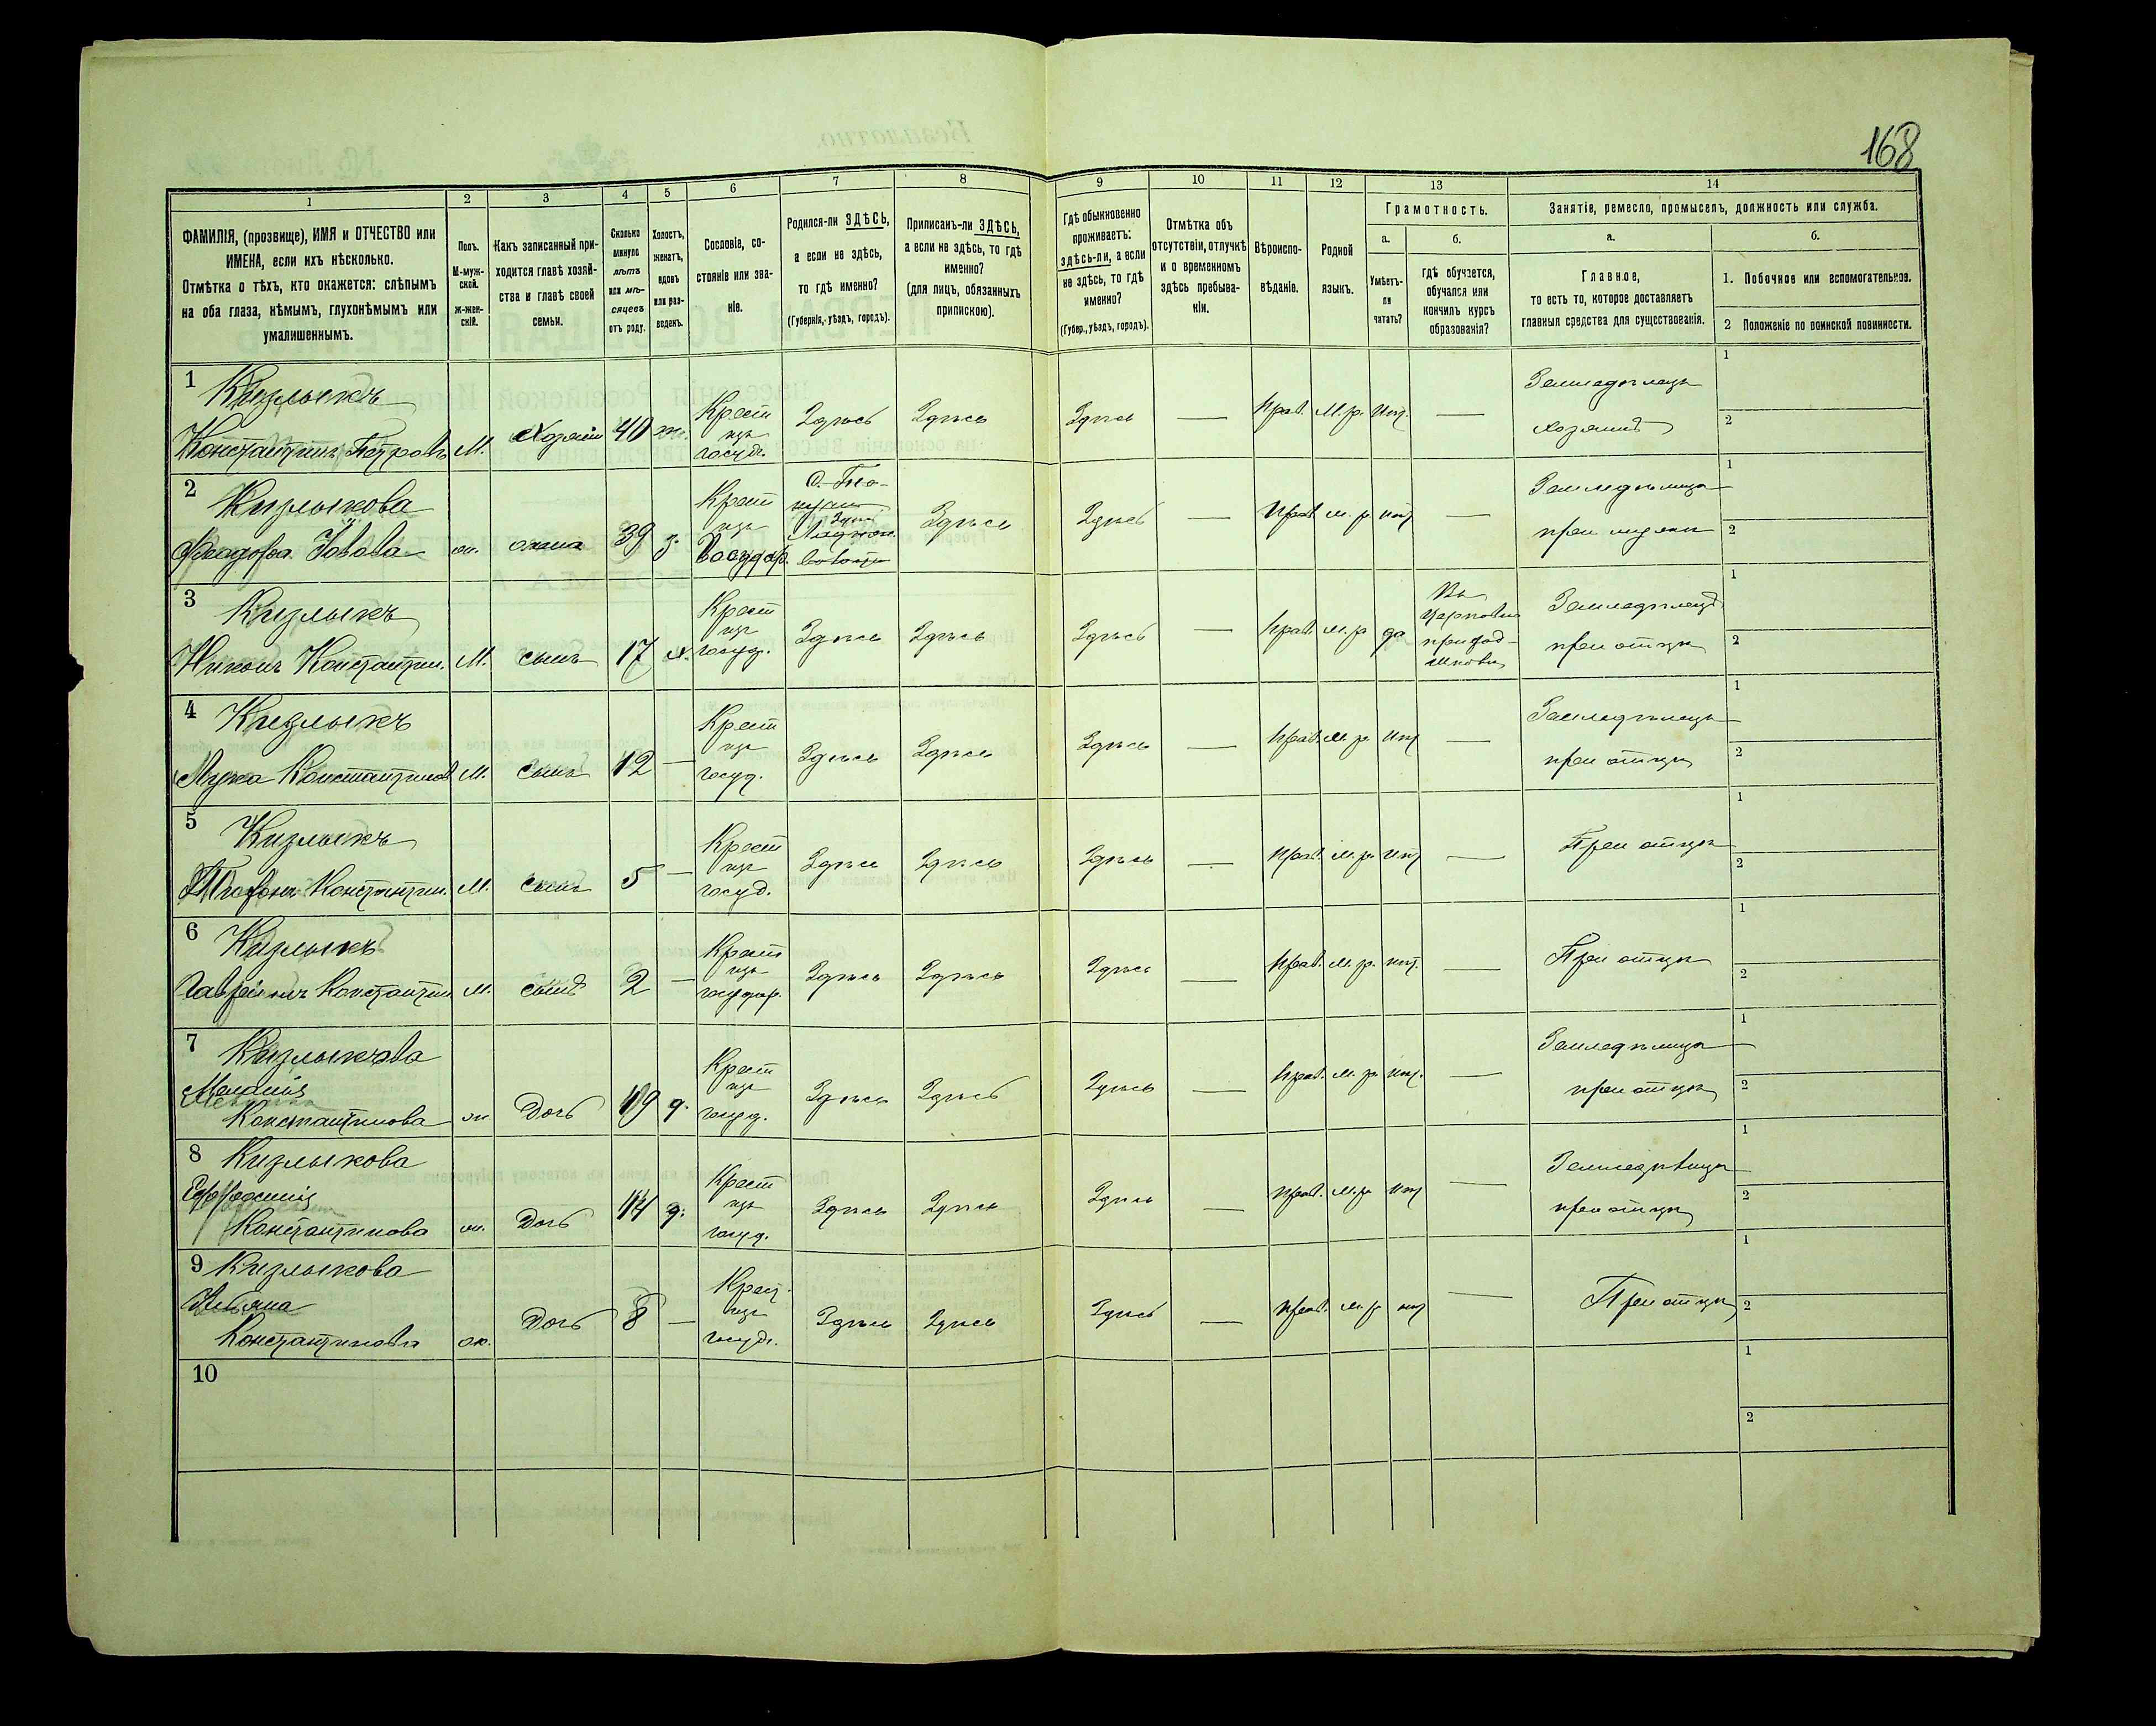 168
1 2 3 4 5 6 7 8 9 10 11 12 13 14
ФАМИЛІЯ, (прозвище), ИМЯ и ОТЧЕСТВО или
ИМЕНА, если ихъ нѣсколько.
Отмѣтка о тѣхъ, кто окажется: слѣпымъ
на оба глаза, нѣмымъ, глухонѣмымъ или
умалишеннымъ.
Полъ.
М-муж-
ской.
ж-жен-
скій.
Какъ записанный при-
ходится главѣ хозяй-
ства и главѣ своей
семьи.
Сколько
минуло
лѣтъ
или мѣ-
сяцевъ
отъ роду.
Холостъ,
женатъ,
вдовъ
или раз-
веденъ.
Сословіе, со-
стояніе или зва-
ніе.
Родился-ли ЗДѢСЬ,
а если не здѣсь,
то гдѣ именно?
(Губернія, уѣздъ, городъ).
Приписанъ-ли ЗДѢСЬ,
а если не здѣсь, то гдѣ
именно?
(для лицъ, обязанныхъ
припискою).
Гдѣ обыкновенно
проживаетъ:
здѣсь-ли, а если
не здѣсь, то гдѣ
именно?
(Губер., уѣздъ, городъ).
Отмѣтка объ
отсутствіи, отлучкѣ
и о временномъ
здѣсь пребыва-
ніи.
Вѣроиспо-
вѣданіе.
Родной
языкъ.
Грамотность.
а.
Умѣетъ-
ли
читать?
б.
гдѣ обучается,
обучался или
кончилъ курсъ
образованія?
Занятіе, ремесло, промыселъ, должность или служба.
а.
Главное,
то есть то, которое доставляетъ
главныя средства для существованія.
б.
1. Побочное или вспомогательное.
2 Положеніе по воинской повинности.
1
Кизлыкъ
Константинъ Петровъ
М.
Хозяинъ
40
ж.
Крест
изъ
госуд.
Здѣсь
Здѣсь
Здѣсь
—
Прав.
М. р.
нѣт.
—
Земледѣлецъ
хозяинъ
1
2
2
Кизлыкова
Ѳеодора Іовова
ж.
жена
39
з.
Крест
изъ
Государ.
Здѣсь
Здѣсь
—
Прав
м. р
нѣт
—
Земледѣлица
при мужѣ
1
2
3
Кизлыкъ
Никонъ Константин.
М.
сынъ
17
х.
Крест
изъ
госуд.
Здѣсь
Здѣсь
Здѣсь
—
Прав.
м. р
да
Въ
Церковно
приход-
школѣ
Земледѣлецъ
при отцѣ
1
2
4
Кизлыкъ
Лука Константинов
М.
сынъ
12
—
Крест
изъ
госуд.
Здѣсь
Здѣсь
Здѣсь
—
Прав.
м. р.
нѣт
—
Земледѣлецъ
при отцѣ
1
2
5
Кизлыкъ
Константин.
М.
сынъ
5
—
Крест
изъ
госуд.
Здѣсь
Здѣсь
Здѣсь
—
Прав.
м. р.
нѣт
—
При отцѣ
1
2
6
Кизлыкъ
Гавріилъ Константин
М.
сынъ
2
—
Крест
изъ
государ.
Здѣсь
Здѣсь
Здѣсь
—
Прав.
м. р.
нѣт.
—
При отцѣ
1
2
7
Кизлыкова
Меланія
Константинова
ж
Дочь
19
д.
Крест
изъ
госуд.
Здѣсь
Здѣсь
Здѣсь
—
Прав.
м. р.
нѣт.
—
Земледѣлица
при отцѣ
1
2
8
Кизлыкова
Константинова
ж.
Дочь
14
д.
Крест
изъ
госуд.
Здѣсь
Здѣсь
Здѣсь
—
Прав.
м. р.
нѣт
—
при отцѣ
1
2
9
Кизлыкова
Константинова
ж.
Дочь
8
—
Крест.
изъ
госуд.
Здѣсь
Здѣсь
Здѣсь
—
Прав.
м. р
нѣт
—
При отцѣ
1
2
10
1
2